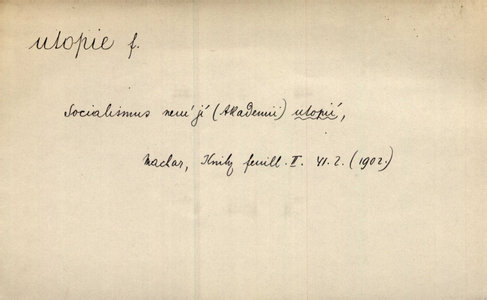 utopie f.
Socialismus není jí (Akademii) utopií,
Machar, Knihy feuill. II. 41. 2. (1902.)